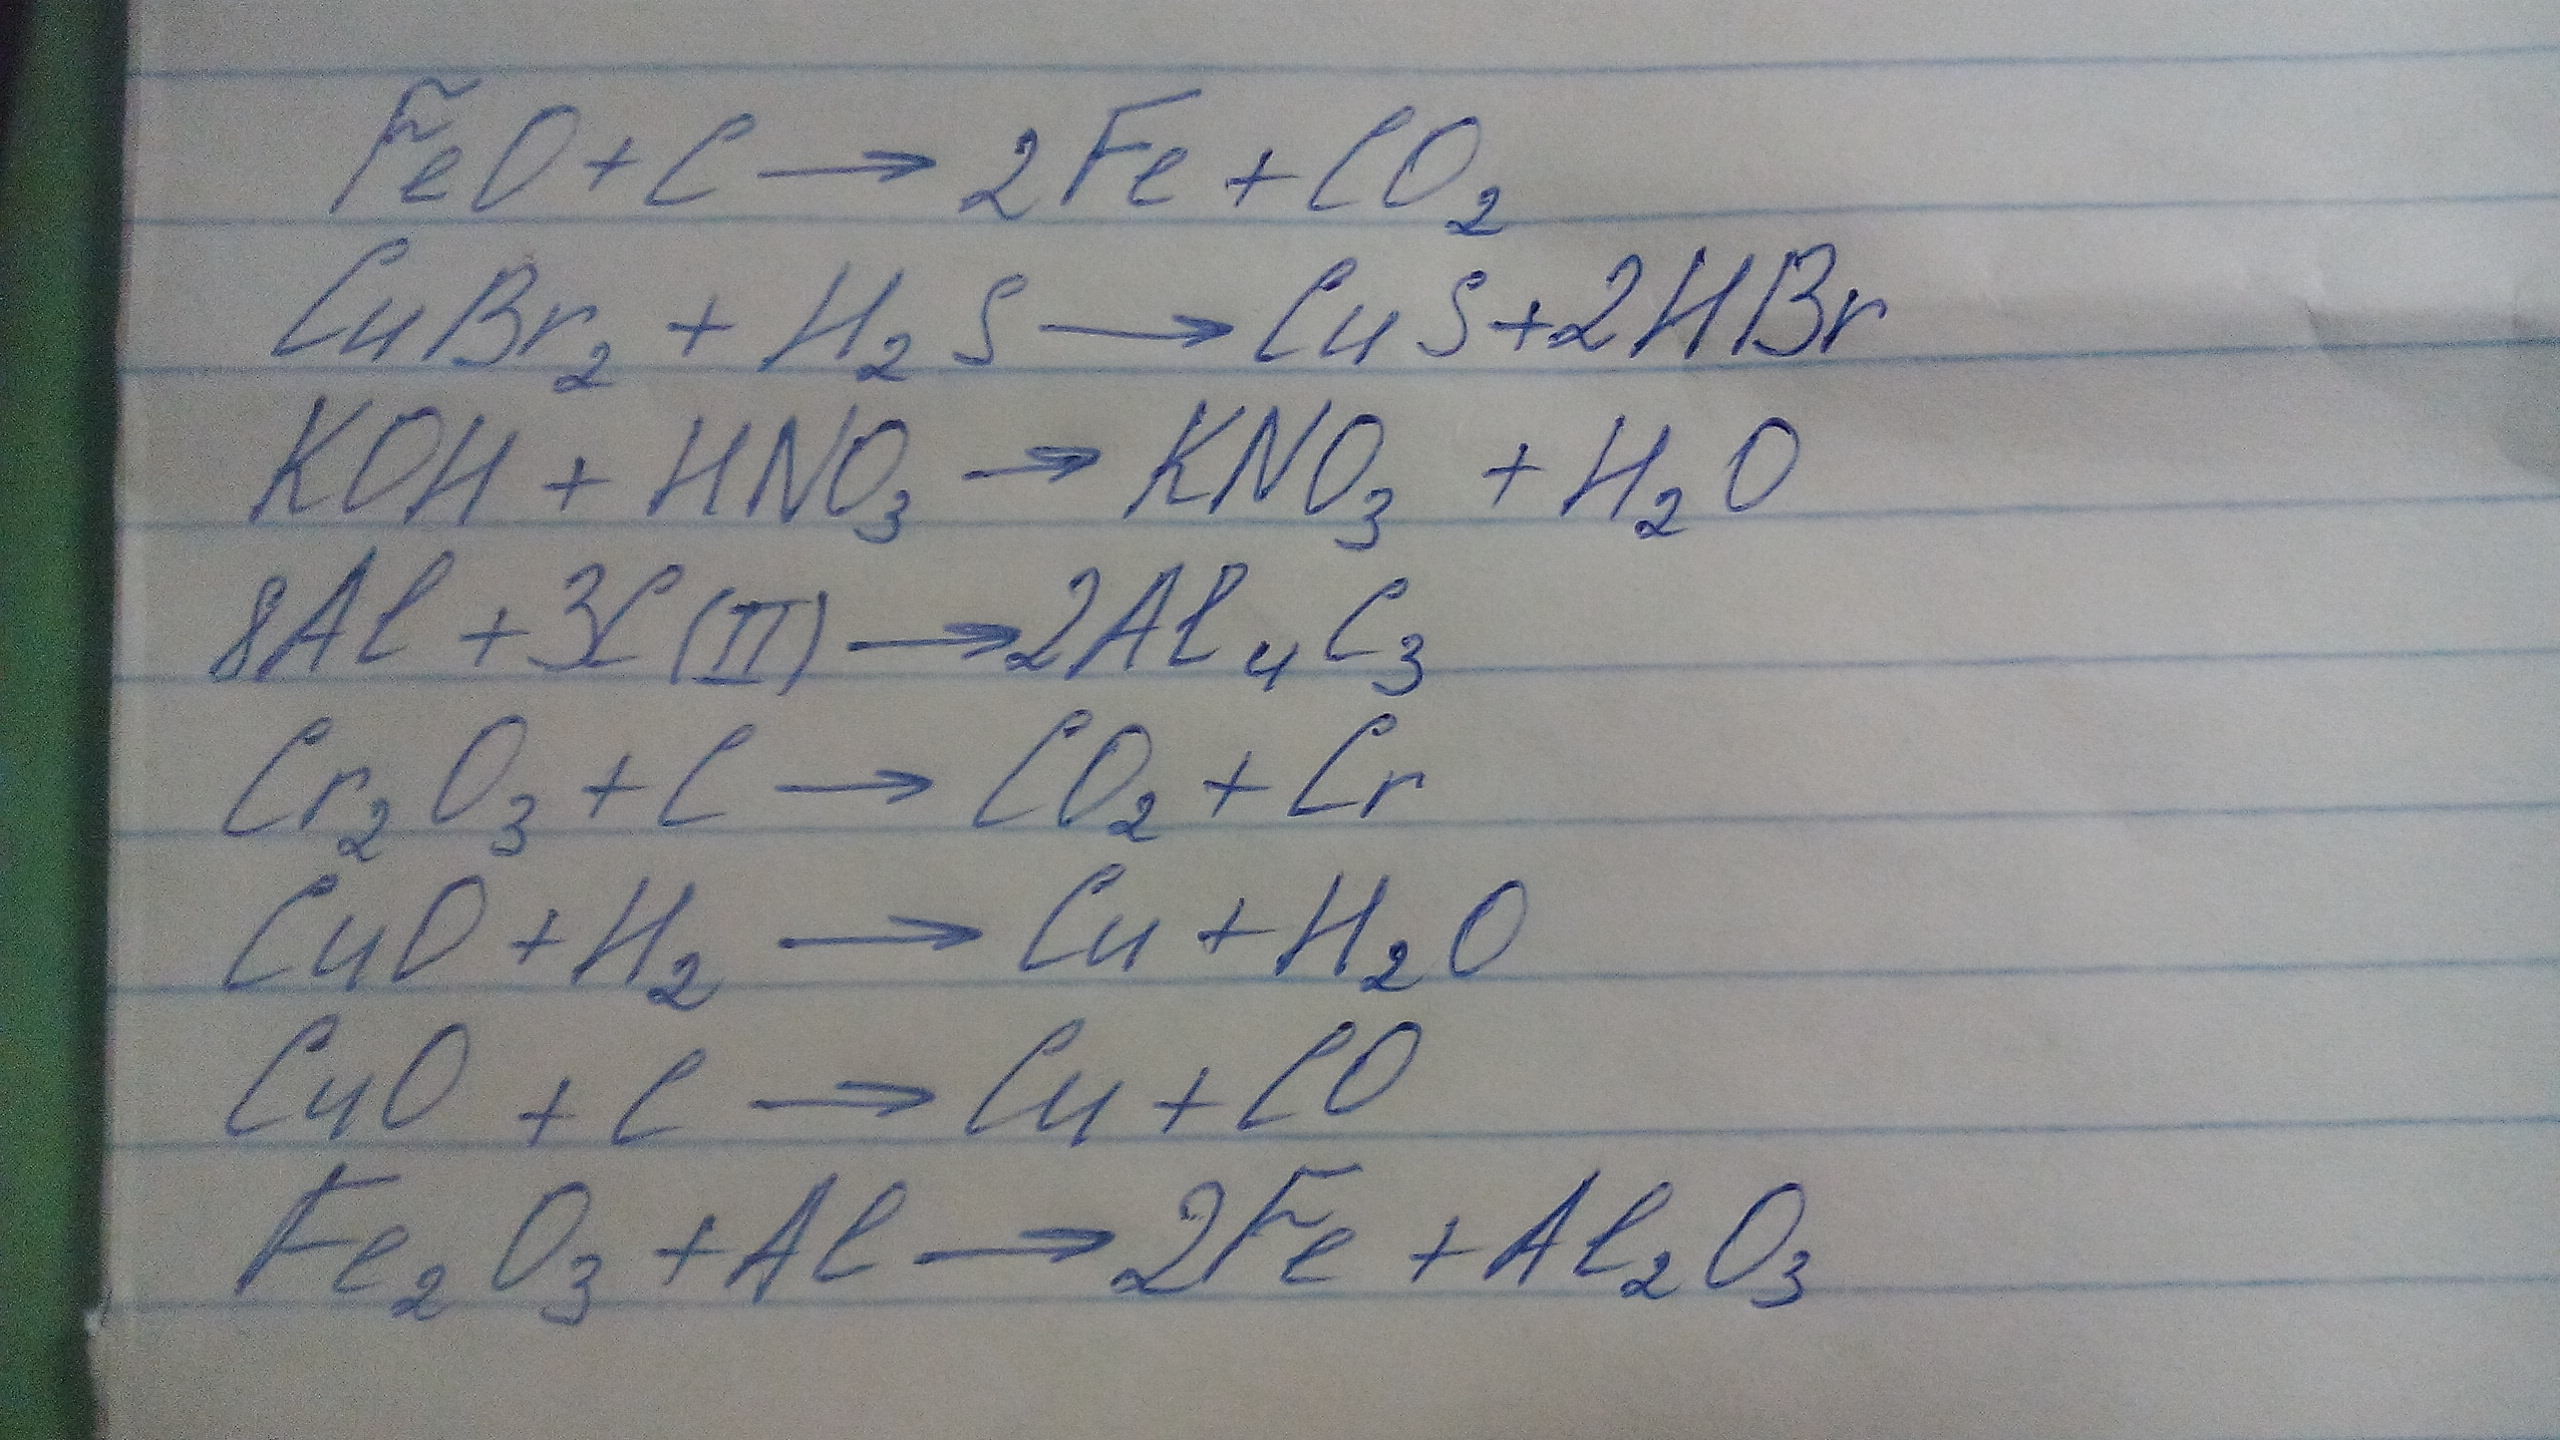 FeO + C → 2Fe + CO₂
CuBr₂ + H₂S → CuS + 2HBr
KOH + HNO₃ → KNO₃ + H₂O
8Al + 3C (II) → 2Al₄C₃
Cr₂O₃ + C → CO₂ + Cr
CuO + H₂ → Cu + H₂O
CuO + C → Cu + CO
Fe₂O₃ + Al → 2Fe + Al₂O₃